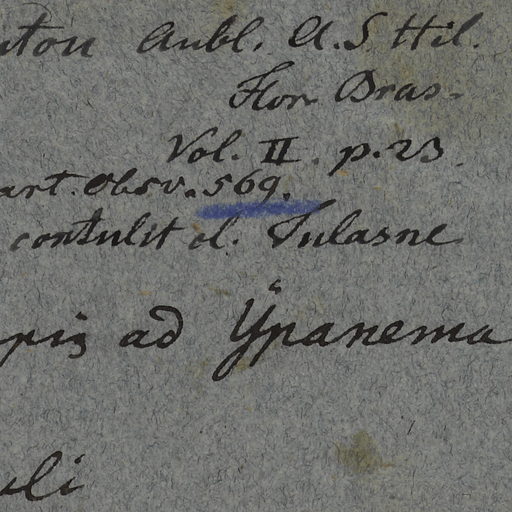 Aubl. A. S Hil.
Flor. Bras.
Vol. II. p. 23.
art. Obsv. 569.
contulit cl. Tulasne
ad Ÿpanema